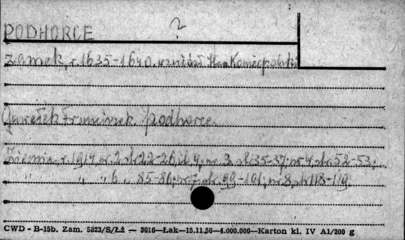 PODHORCE ?
Zamek, r. 1635-1640. wzniósł Stan. Koniecpolski
Jarošek Franciszek. Podhorce.
Ziemia, r. 1914, nr. 2 str. 22-26, nr. 3 str. 35-37; nr 4 str. 52-53;
" " " 6 " 85-86; nr 7 str. 99-101; nr 8 str. 118-119.
CWD - B-15b. Zam. 5823/S/Lż — 3016—Łak—15.11.56—4.000.000—Karton kl. IV A1/200 g